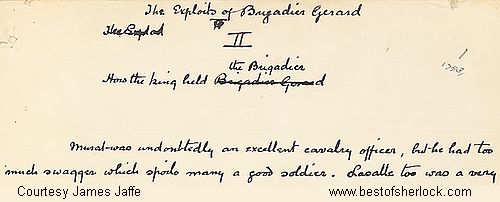 The Exploits of Brigadier Gerard
II
the Brigadier
How the King held Brigadier Gerard
Murat was undoubtedly an excellent cavalry officer, but he had too
much swagger which spoils many a good soldier. Lasalle too was a very
Courtesy James Jaffe
www.bestofsherlock.com